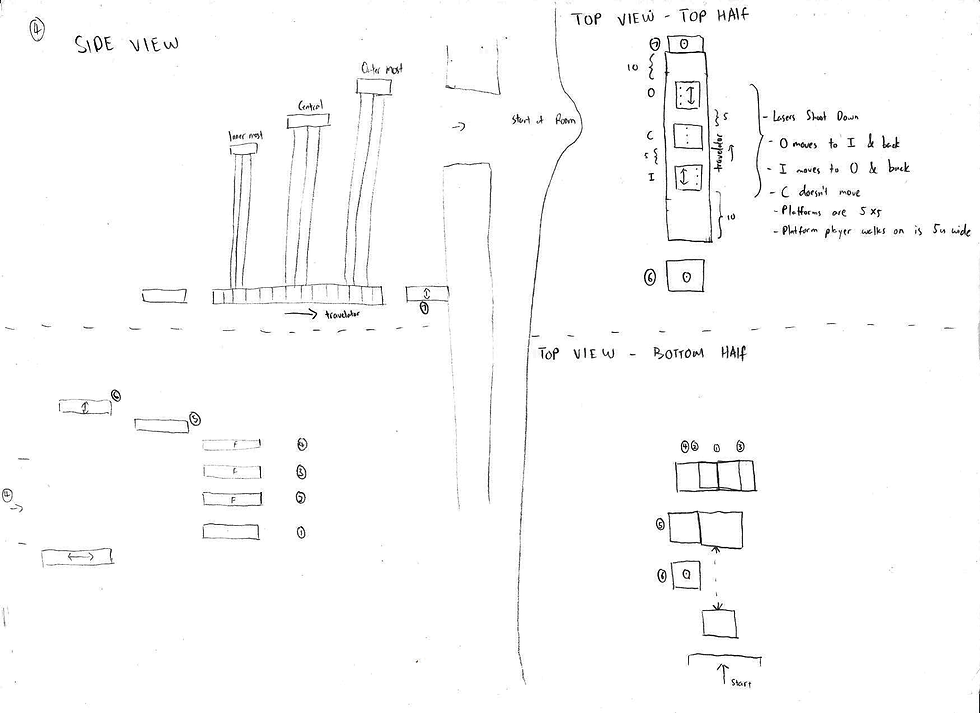 4
SIDE VIEW
Outer most
Central
Inner most
Start of Room
travelator
7
6
5
F 4
F 3
F 2
1
4
TOP VIEW - TOP HALF
7
10
O
5
C
travelator
5
I
10
6
- Lasers Shoot Down
- O moves to I & back
- I moves to O & back
- C doesn't move
- Platforms are 5x5
- Platform player walks on is 5u wide
TOP VIEW - BOTTOM HALF
4 2 1 3
5
6
Start